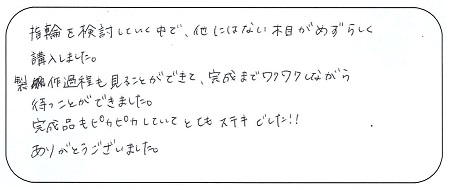 指輪を検討していく中で、他にはない木目がめずらしく
購入しました。
製作過程も見ることができて、完成までワクワクしながら
待つことができました。
完成品もピカピカしていてとてもステキでした!!
ありがとうございました。